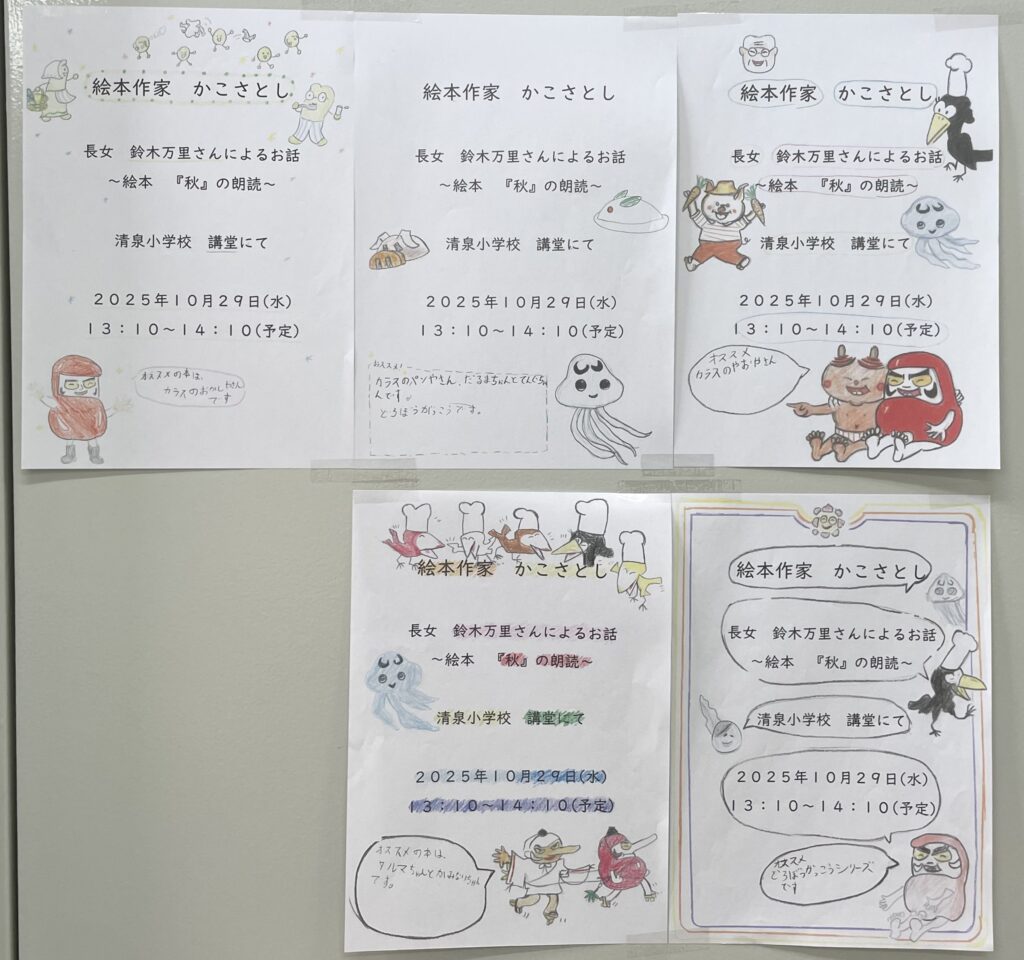 絵本作家　かこさとし
長女　鈴木万里さんによるお話
～絵本　『秋』の朗読～
清泉小学校　講堂にて
２０２５年１０月２９日(水)
１３：１０～１４：１０(予定)
オススメの本は、
カラスのおかしやさん
です
絵本作家　かこさとし
長女　鈴木万里さんによるお話
～絵本　『秋』の朗読～
清泉小学校　講堂にて
２０２５年１０月２９日(水)
１３：１０～１４：１０(予定)
おススメ!
カラスのパンやさん、だるまちゃんとてんぐちゃ
んです。
どろぼうがっこうです。
絵本作家　かこさとし
長女　鈴木万里さんによるお話
～絵本　『秋』の朗読～
清泉小学校　講堂にて
２０２５年１０月２９日(水)
１３：１０～１４：１０(予定)
オススメ
カラスのやおやさん
絵本作家　かこさとし
長女　鈴木万里さんによるお話
～絵本　『秋』の朗読～
清泉小学校　講堂にて
２０２５年１０月２９日(水)
１３：１０～１４：１０(予定)
オススメの本は、
ダルマちゃんとかみなりちゃん
です。
絵本作家　かこさとし
長女　鈴木万里さんによるお話
～絵本　『秋』の朗読～
清泉小学校　講堂にて
２０２５年１０月２９日(水)
１３：１０～１４：１０(予定)
オススメ
どろぼうがっこうシリーズ
です